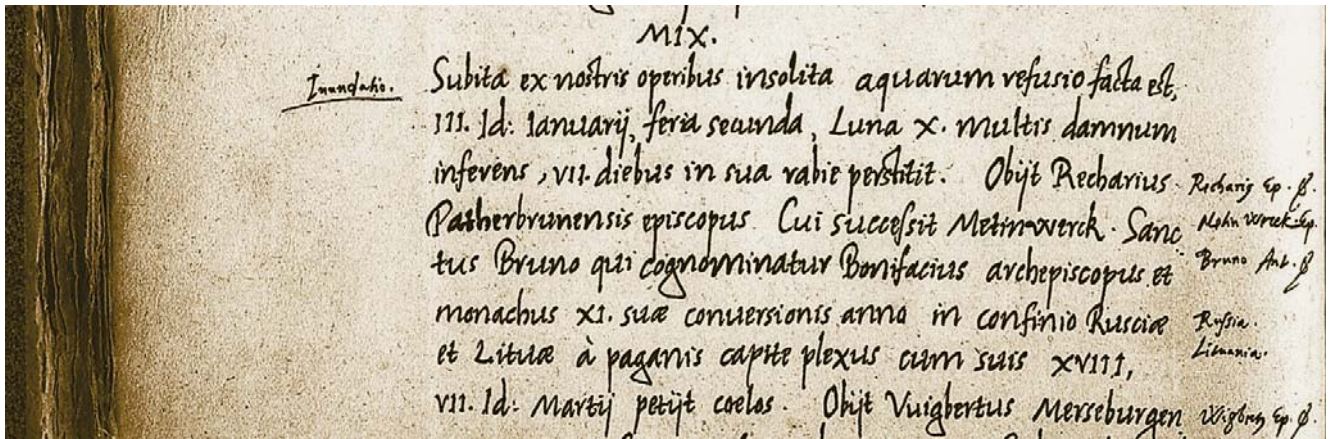 MIX.
Inundatio. Subita ex nostris operibus insolita aquarum refusio facta est,
III. Id: Ianuarij, feria secunda, Luna X. multis damnum
inferens, VII. diebus in sua rabie perstitit. Obijt Recharius Ep.
Patherbrunensis episcopus. Cui successit Metinwerck. Sanc Ep.
tus Bruno qui cognominatur Bonifacius archepiscopus et Bruno
monachus XI. suæ conuersionis anno in confinio Rusciæ Russia.
et Lituæ à paganis capite plexus cum suis XVIII, Lituania.
VII. Id: Martij petijt coelos. Obijt Vuigbertus Merseburgen Ep.